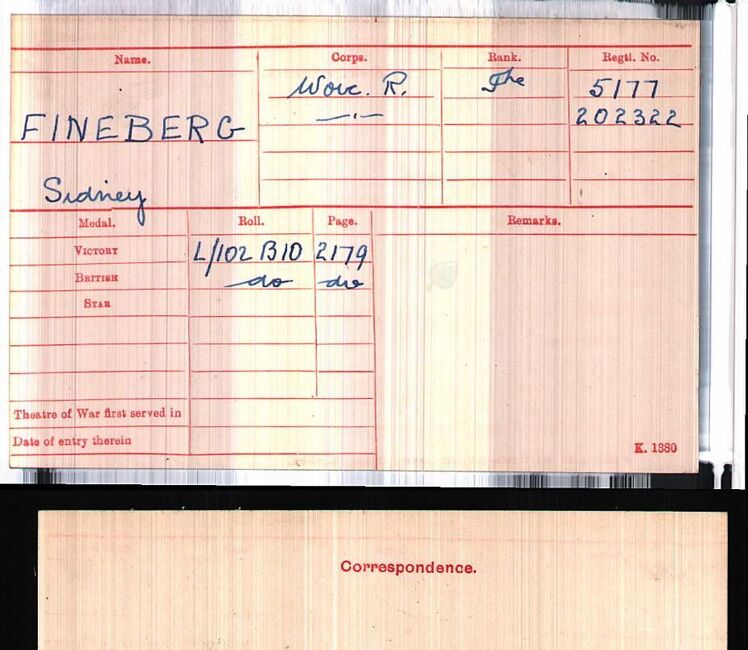 Name. Corps. Rank. Regtl. No.
Worc. R. Pte 5177
FINEBERG —"— 202322
Sidney
Medal. Roll. Page. Remarks.
VICTORY L/102 B10 2179
BRITISH do do
STAR
Theatre of War first served in
Date of entry therein
K. 1380
Correspondence.